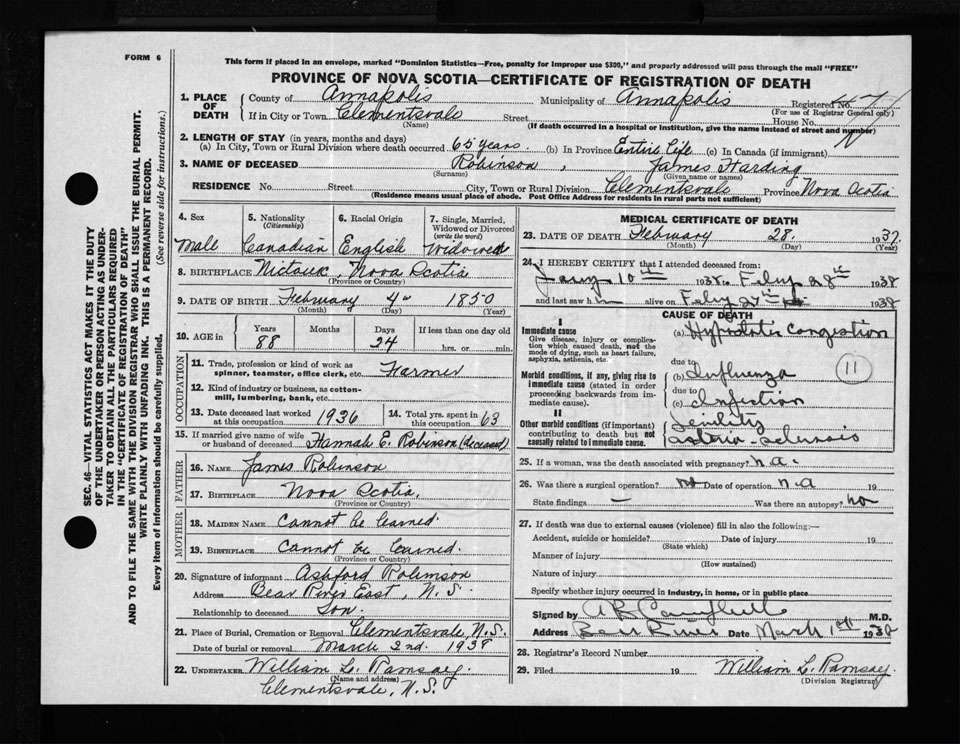 FORM 6
This form if placed in an envelope, marked "Dominion Statistics—Free, penalty for improper use $300," and properly addressed will pass through the mail "FREE"
PROVINCE OF NOVA SCOTIA—CERTIFICATE OF REGISTRATION OF DEATH
1. PLACE OF DEATH
County of Annapolis Municipality of Annapolis Registered No.
(For use of Registrar General only)
If in City or Town Clementsvale Street House No.
(Name) (If death occurred in a hospital or institution, give its name instead of street and number)
2. LENGTH OF STAY (in years, months and days)
(a) In City, Town or Rural Division where death occurred 65 years. (b) In Province Entire Life (c) In Canada (if immigrant)
3. NAME OF DECEASED Robinson, James Harding
(Surname) (Given name or names)
RESIDENCE No. Street City, Town or Rural Division Clementsvale Province Nova Scotia
(Residence means usual place of abode. Post Office Address for residents in rural parts not sufficient)
4. Sex Male
5. Nationality (Citizenship) Canadian
6. Racial Origin English
7. Single, Married, Widowed or Divorced (write the word) Widowed
8. BIRTHPLACE Nictaux, Nova Scotia
(Province or Country)
9. DATE OF BIRTH February 4 1850
(Month) (Day) (Year)
10. AGE in Years 88 Months Days 24 If less than one day old hrs. or min.
OCCUPATION
11. Trade, profession or kind of work as spinner, teamster, office clerk, etc. Farmer
12. Kind of industry or business, as cotton-mill, lumbering, bank, etc.
13. Date deceased last worked at this occupation 1936
14. Total yrs. spent in this occupation 63
15. If married give name of wife or husband of deceased Hannah E. Robinson (deceased)
FATHER
16. NAME James Robinson
17. BIRTHPLACE Nova Scotia.
(Province or Country)
MOTHER
18. MAIDEN NAME Cannot be learned.
19. BIRTHPLACE Cannot be learned.
(Province or Country)
20. Signature of informant Ashford Robinson
Address Bear River East, N.S.
Relationship to deceased Son.
21. Place of Burial, Cremation or Removal Clementsvale, N.S.
Date of burial or removal March 2nd. 1938
22. UNDERTAKER William L. Ramsay.
(Name and address)
Clementsvale, N.S.
MEDICAL CERTIFICATE OF DEATH
23. DATE OF DEATH February 28. 1937.
(Month) (Day) (Year)
24. I HEREBY CERTIFY that I attended deceased from:
Jany 10th 1938 to Feby 28th 1938
and last saw h alive on Feby 27 1938
CAUSE OF DEATH
I
Immediate cause
Give disease, injury or complication which caused death, not the mode of dying, such as heart failure, asphyxia, asthenia, etc.
(a) Hypostatic Congestion
due to
Morbid conditions, if any, giving rise to immediate cause (stated in order proceeding backwards from immediate cause).
(b) Influenza
due to
(c) Infection
11
II
Other morbid conditions (if important) contributing to death but not causally related to immediate cause.
Senility
Arterio-sclerosis
25. If a woman, was the death associated with pregnancy? n.a.
26. Was there a surgical operation? no Date of operation n.a 19
State findings — Was there an autopsy? no
27. If death was due to external causes (violence) fill in also the following:—
Accident, suicide or homicide? Date of injury 19
(State which)
Manner of injury
(How sustained)
Nature of injury
Specify whether injury occurred in Industry, in home, or in public place
Signed by A B Campbell M.D.
Address Bear River Date March 1st 1938
28. Registrar's Record Number
29. Filed 19 William L. Ramsay
(Division Registrar)
SEC. 46—VITAL STATISTICS ACT MAKES IT THE DUTY
OF THE UNDERTAKER OR PERSON ACTING AS UNDER-
TAKER TO OBTAIN ALL THE PARTICULARS REQUIRED
IN THE "CERTIFICATE OF REGISTRATION OF DEATH"
AND TO FILE THE SAME WITH THE DIVISION REGISTRAR WHO SHALL ISSUE THE BURIAL PERMIT.
WRITE PLAINLY WITH UNFADING INK. THIS IS A PERMANENT RECORD.
Every item of information should be carefully supplied. (See reverse side for instructions.)